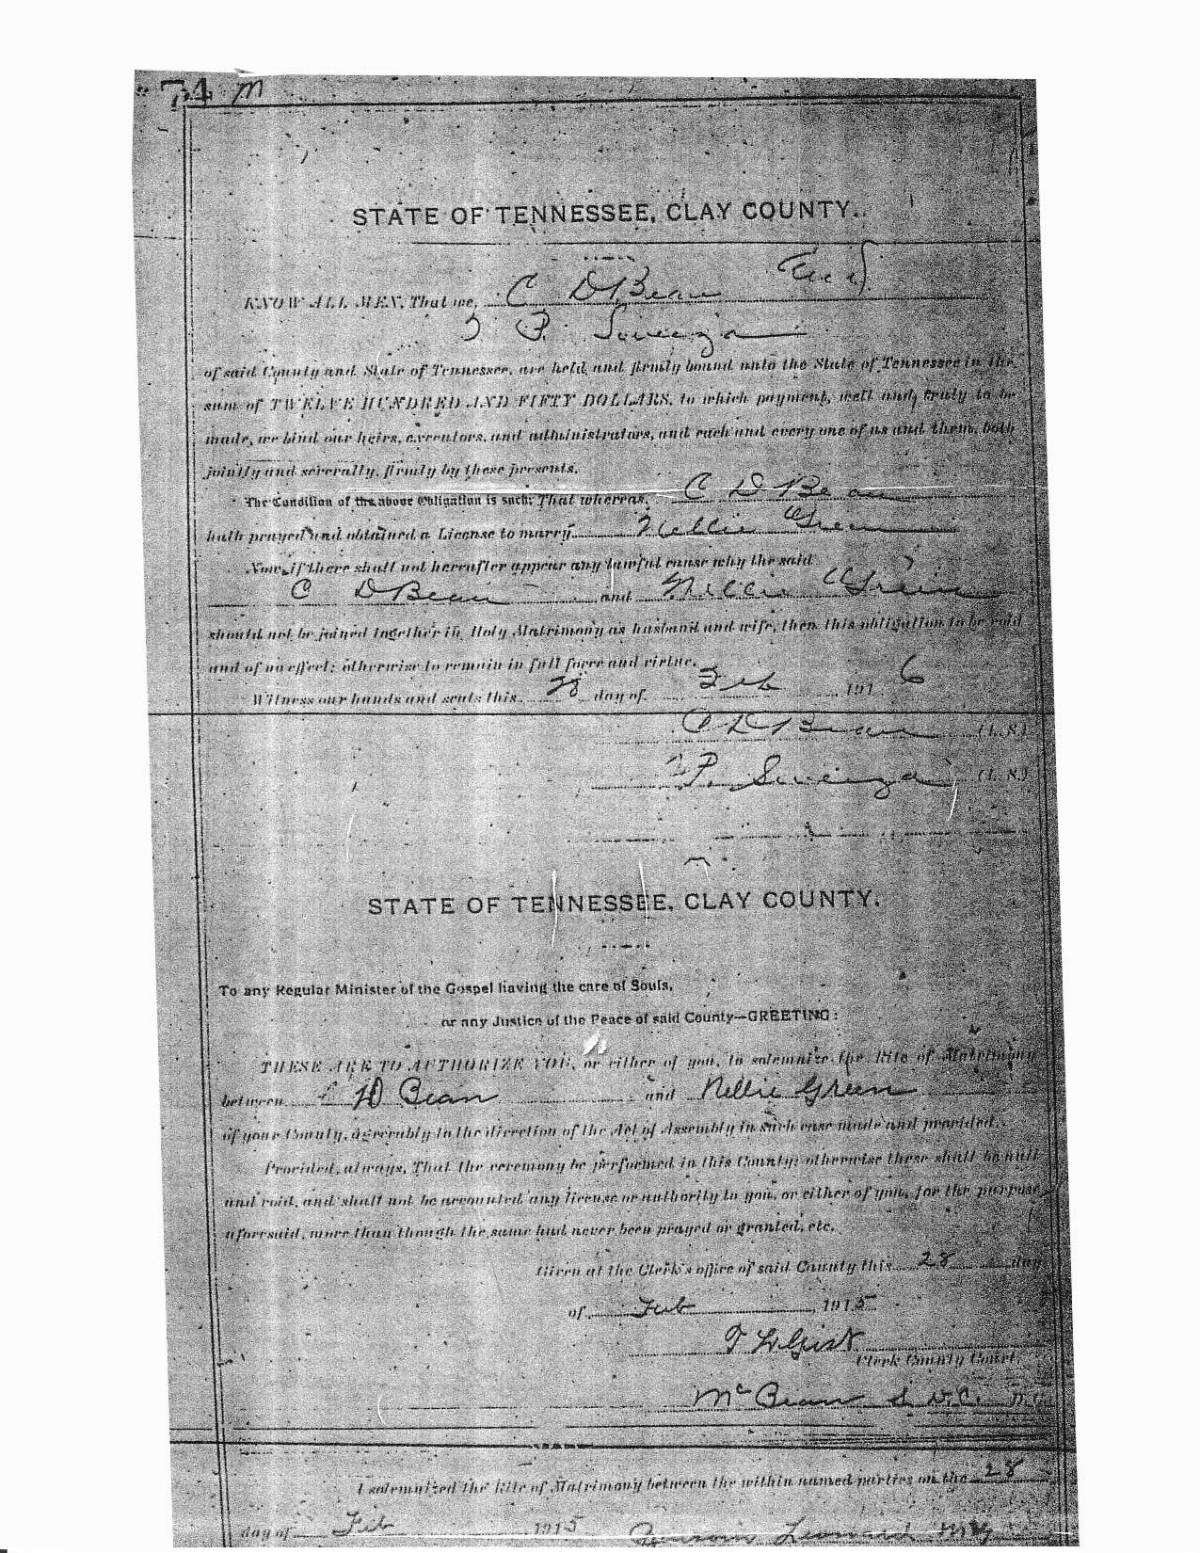 74 M
STATE OF TENNESSEE, CLAY COUNTY.
KNOW ALL MEN, That we, C D Bean and
P. Sweezea
of said County and State of Tennessee, are held and firmly bound unto the State of Tennessee in the
sum of TWELVE HUNDRED AND FIFTY DOLLARS, to which payment, well and truly to be
made, we bind our heirs, executors, and administrators, and each and every one of us and them, both
jointly and severally, firmly by these presents.
The Condition of the above Obligation is such: That whereas, C D Bean
hath prayed and obtained a License to marry Nellie Green
Now, if there shall not hereafter appear any lawful cause why the said
C D Bean and Nellie Green
should not be joined together in Holy Matrimony as husband and wife, then this obligation to be void
and of no effect; otherwise to remain in full force and virtue.
Witness our hands and seals this 28 day of Feb 191 6
C D Bean (L. S.)
P. Sweezea (L. S.)
STATE OF TENNESSEE, CLAY COUNTY.
To any Regular Minister of the Gospel having the care of Souls,
or any Justice of the Peace of said County—GREETING:
THESE ARE TO AUTHORIZE YOU, or either of you, to solemnize the Rite of Matrimony
between C D Bean and Nellie Green
of your County, agreeably to the direction of the Act of Assembly in such case made and provided.
Provided, always, That the ceremony be performed in this County; otherwise these shall be null
and void, and shall not be accounted any license or authority to you, or either of you, for the purpose
aforesaid, more than though the same had never been prayed or granted, etc.
Given at the Clerk's office of said County this 28 day
of Feb, 1915
Gist
Clerk County Court.
Mc Bean D. C.
I solemnized the Rite of Matrimony between the within named parties on the 28
day of Feb 1915 Leonard MG